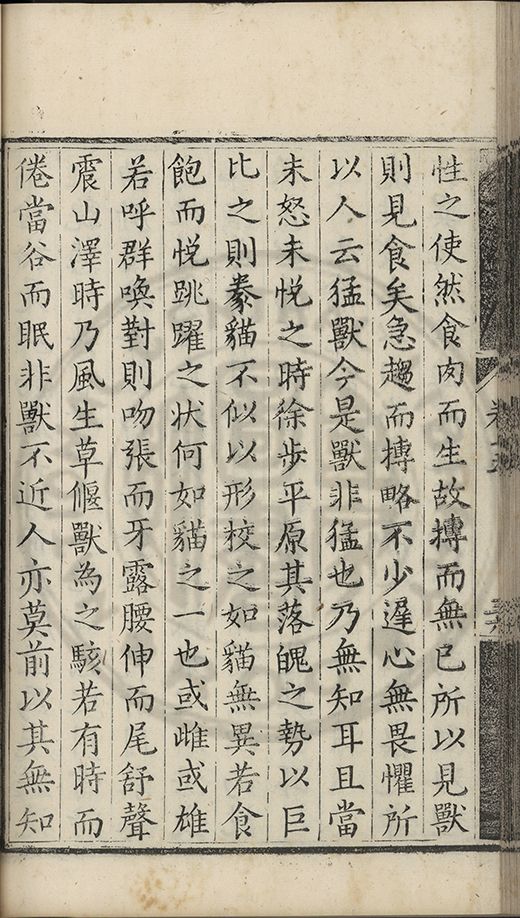 性之使然食肉而生故摶而無已所以見獸
則見食矣急趨而摶略不少遲心無畏懼所
以人云猛獸今是獸非猛也乃無知耳且當
未怒未悅之時徐步平原其落魄之勢以巨
比之則豢貓不似以形校之如貓無異若食
飽而悅跳躍之状何如貓之一也或雌或雄
若呼群喚對則吻張而牙露腰伸而尾舒聲
震山澤時乃風生草偃獸為之駭若有時而
倦當谷而眠非獸不近人亦莫前以其無知